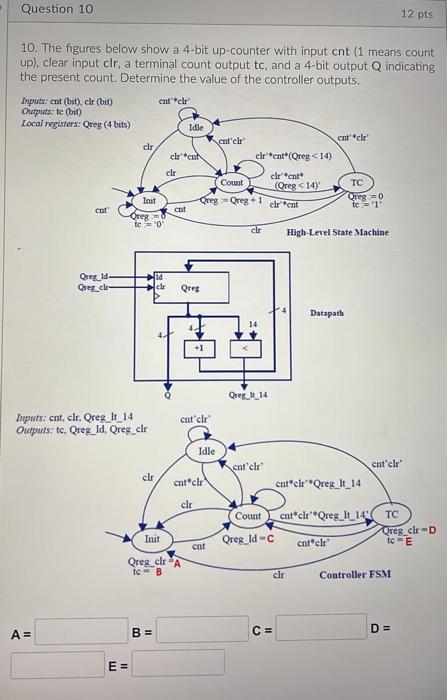 Question 10
12 pts
10. The figures below show a 4-bit up-counter with input cnt (1 means count
up), clear input clr, a terminal count output tc, and a 4-bit output Q indicating
the present count. Determine the value of the controller outputs.
Inputs: cnt (bit), clr (bit)
Outputs: tc (bit)
Local registers: Qreg (4 bits)
cnt'*clr'
Idle
cnt'clr'
cnt'*clr'
clr
clr'*cnt
clr'*cnt*(Qreg < 14)
clr
clr'*cnt*
(Qreg < 14)'
Count
TC
Init
Qreg := Qreg + 1
clr'*cnt
Qreg := 0
tc := '1'
cnt'
cnt
Qreg := 0
tc := '0'
clr
High-Level State Machine
Qreg_ld
Qreg_clr
ld
clr
Qreg
4
Datapath
4
4
14
+1
<
Q
Qreg_lt_14
Inputs: cnt, clr, Qreg_lt_14
Outputs: tc, Qreg_ld, Qreg_clr
cnt'clr'
Idle
cnt'clr'
cnt'clr'
clr
cnt*clr'
cnt*clr'*Qreg_lt_14
clr
Count
cnt*clr'*Qreg_lt_14'
TC
Init
cnt
Qreg_ld = C
cnt*clr'
Qreg_clr = D
tc = E
Qreg_clr = A
tc = B
clr
Controller FSM
A =
B =
C =
D =
E =